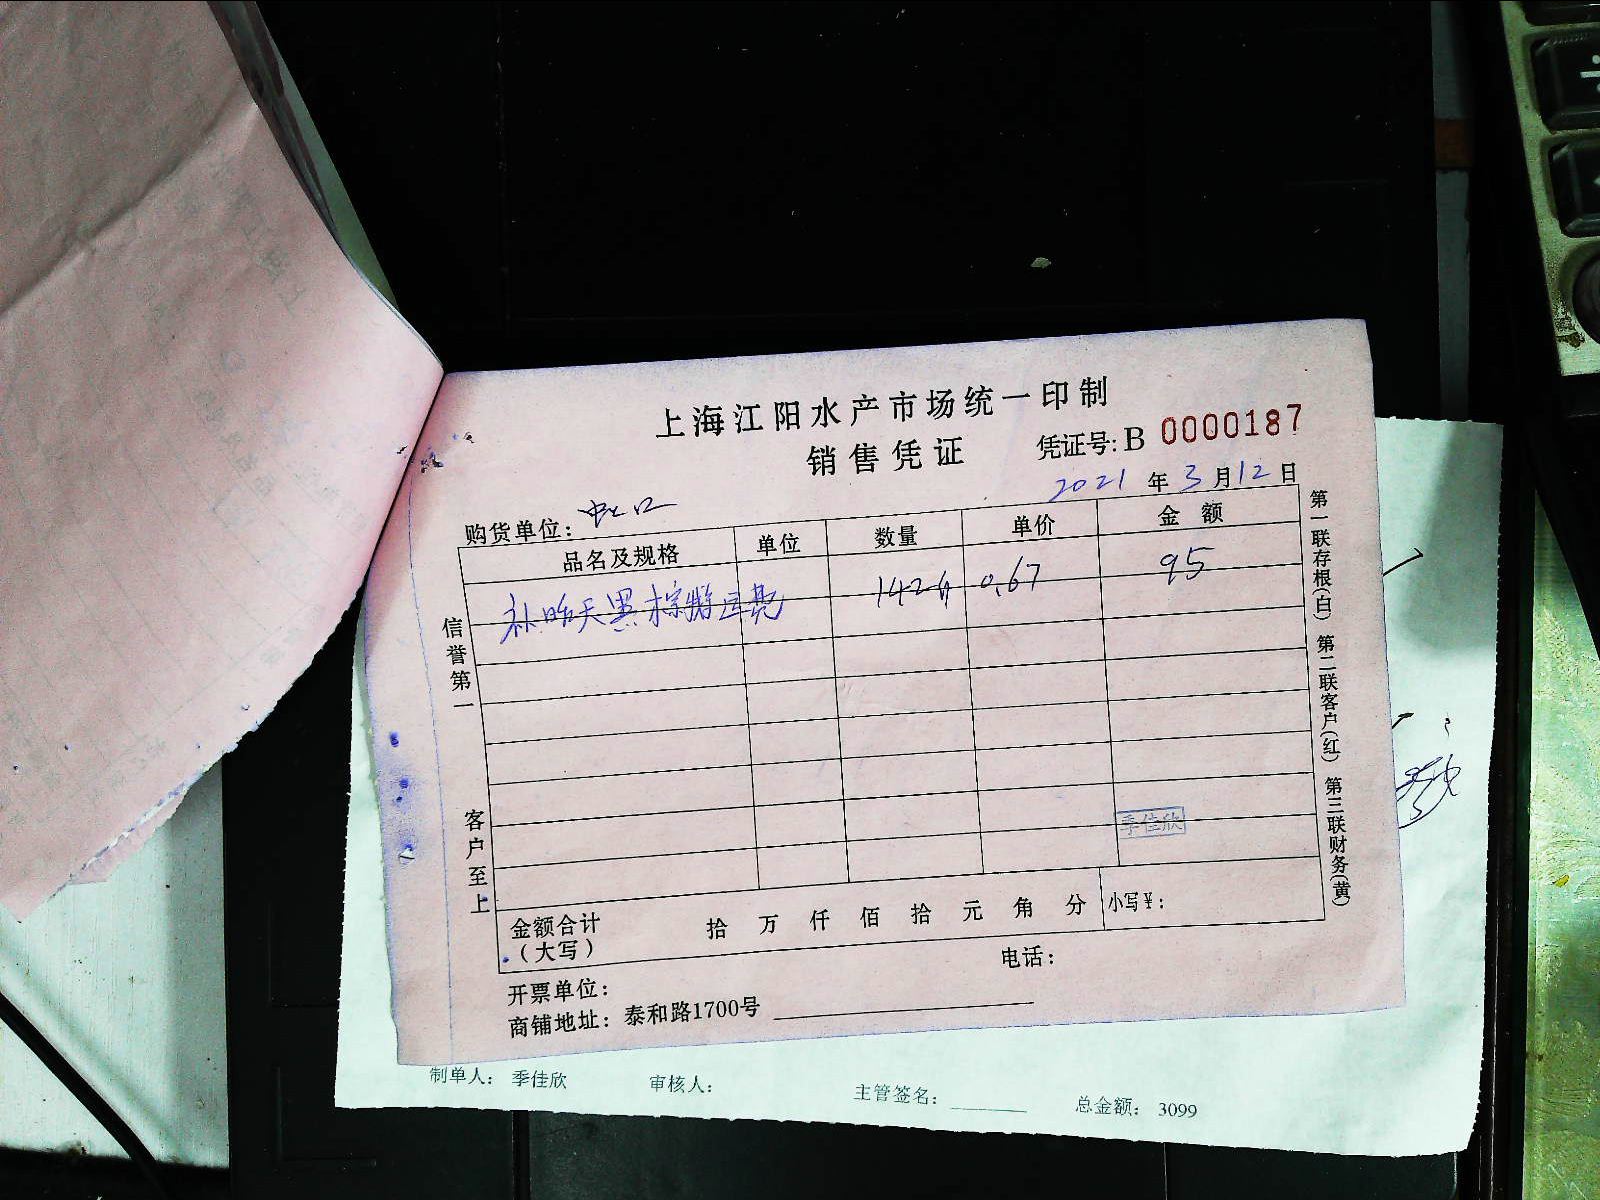 上海江阳水产市场统一印制
销售凭证 凭证号: B 0000187
2021 年 3 月 12 日
购货单位: 虹口
品名及规格 单位 数量 单价 金额
补昨天黑棕蟹运费 142斤 0.67 95
信誉第一
客户至上
季佳欣
第一联存根(白) 第二联客户(红) 第三联财务(黄)
金额合计 拾 万 仟 佰 拾 元 角 分 小写¥:
(大写)
电话:
开票单位:
商铺地址: 泰和路1700号
制单人: 季佳欣 审核人: 主管签名: 总金额: 3099